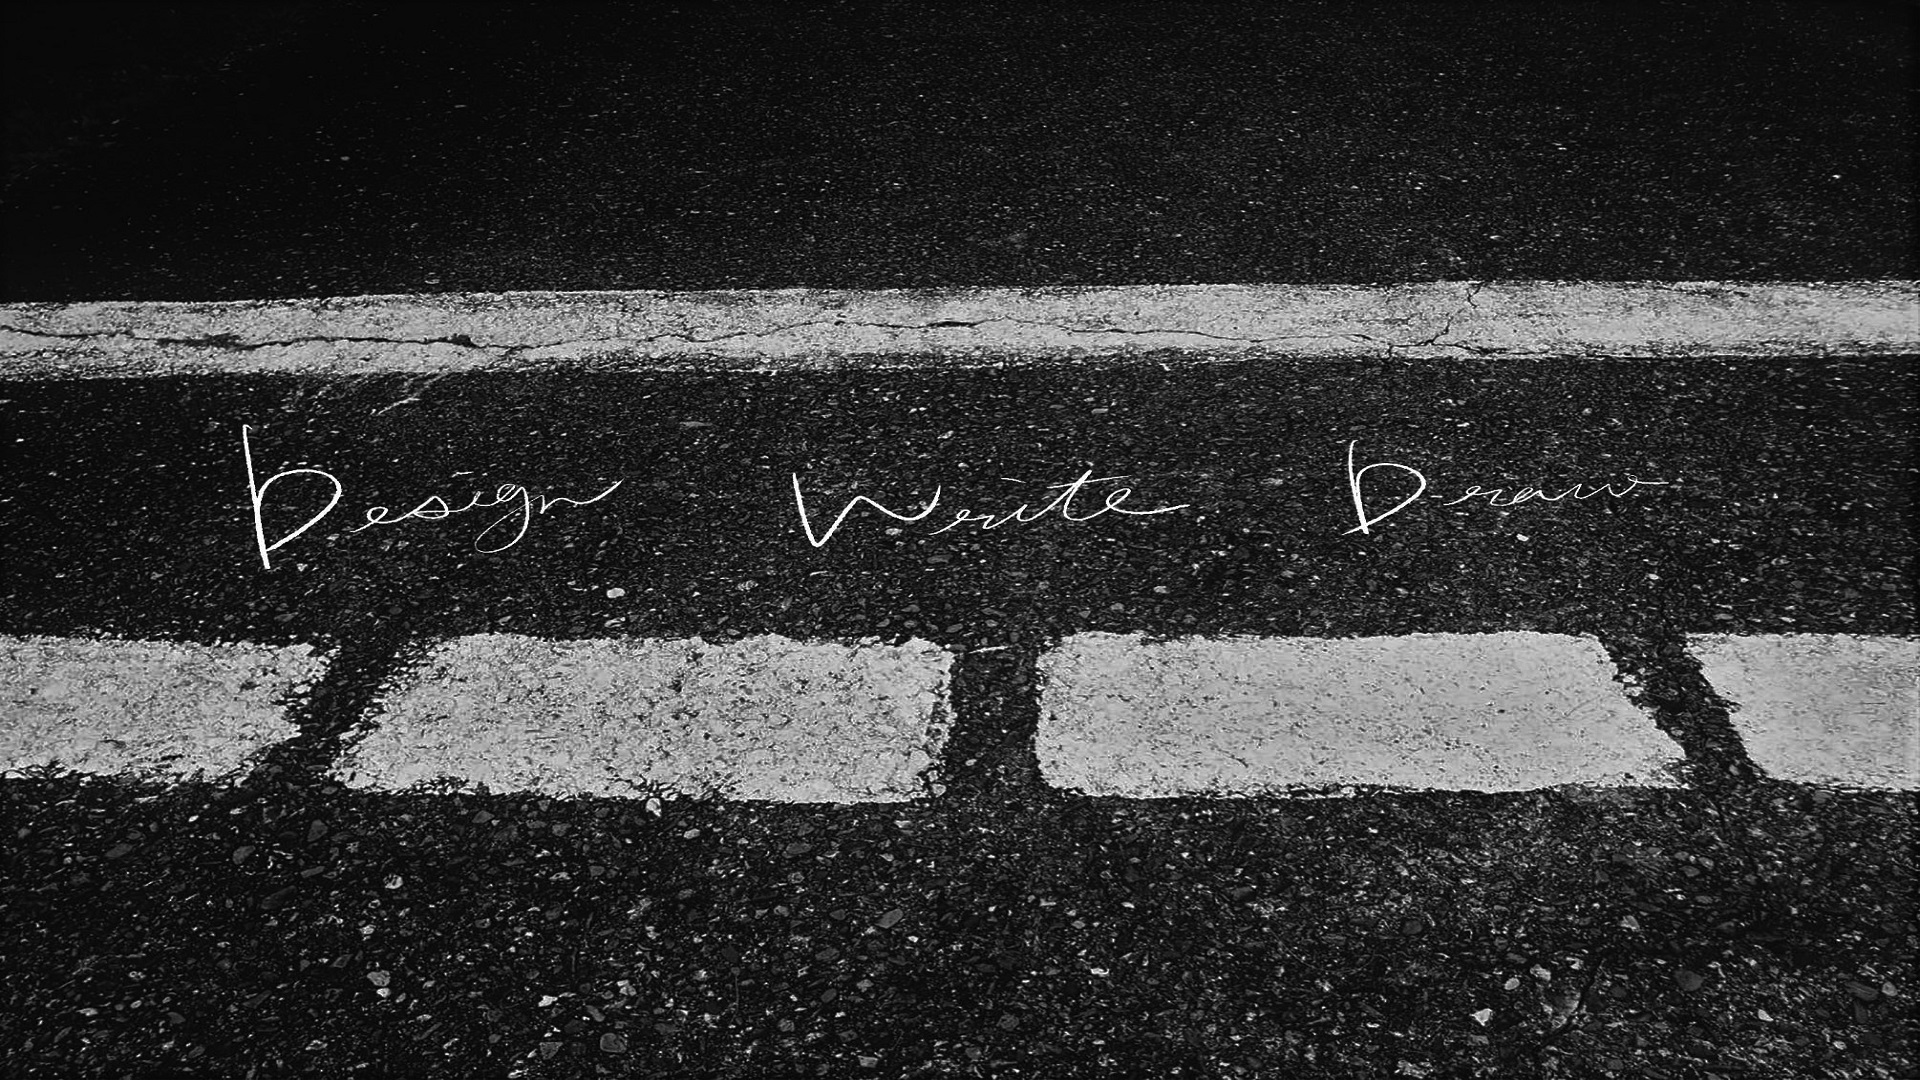 Design Write Draw